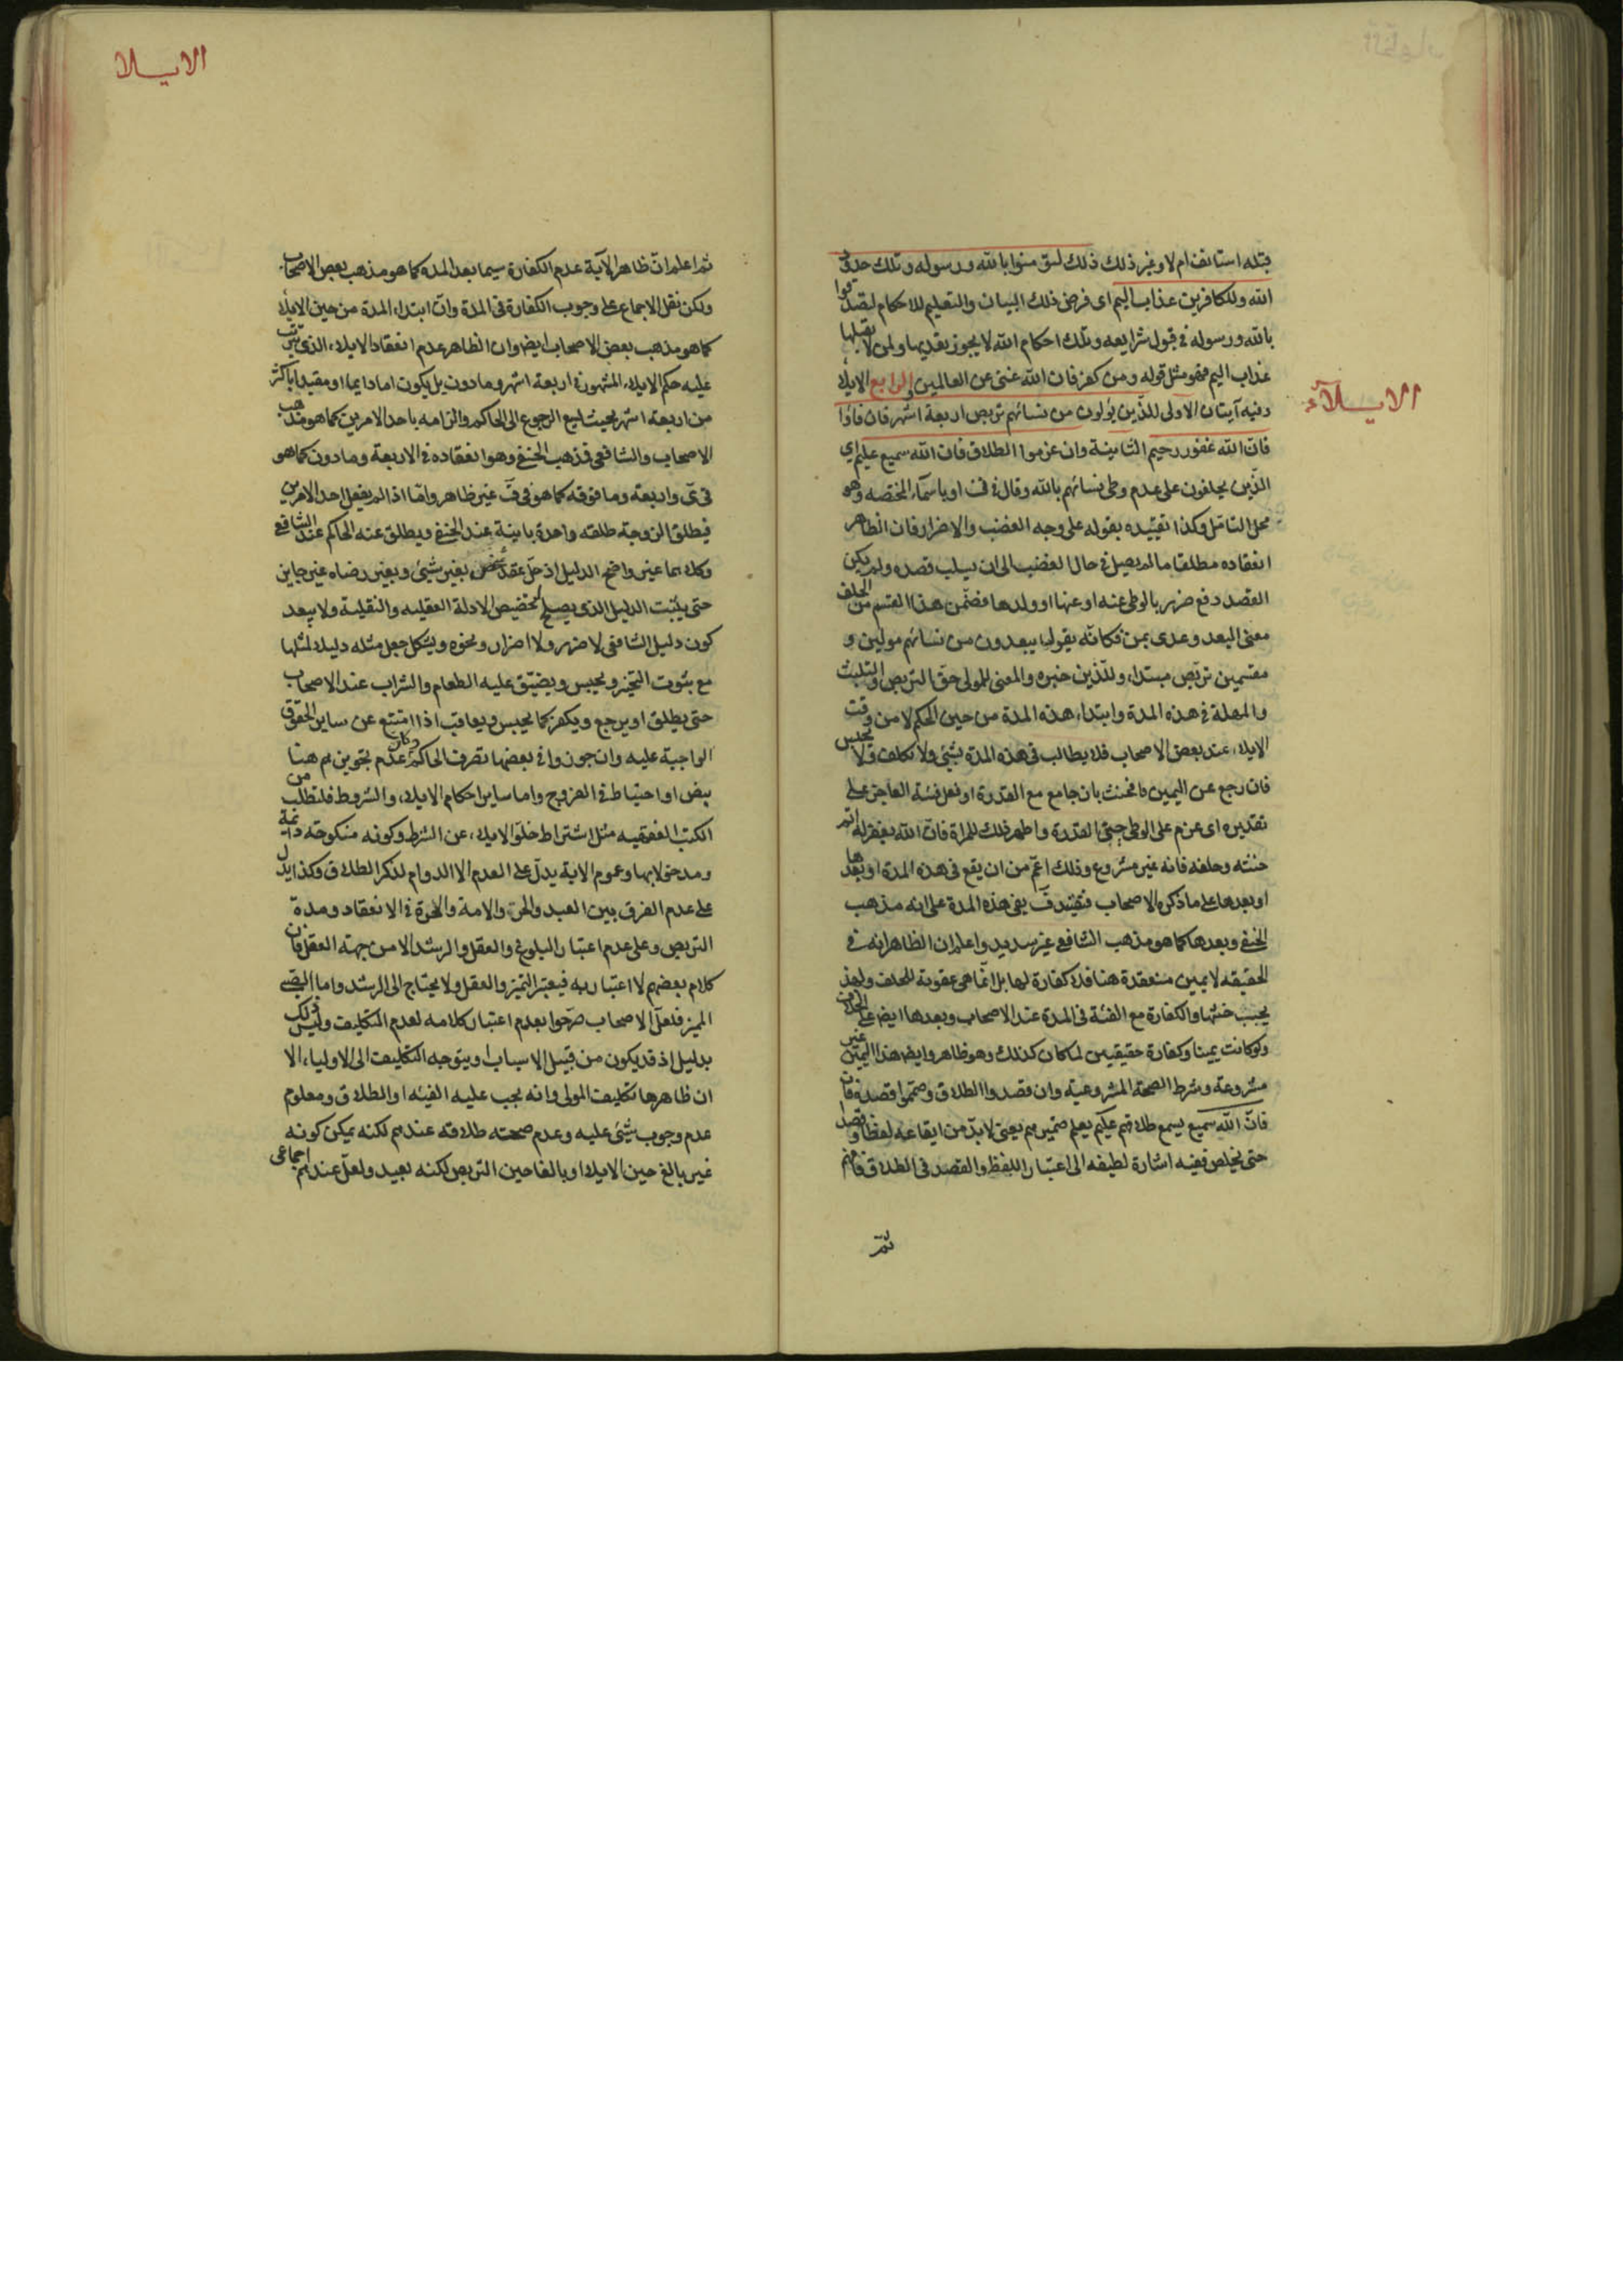 الايلاء
قبله استانف ام لا وغير ذلك ذلك لتؤمنوا بالله ورسوله وتلك حدود
الله وللكافرين عذاب اليم اى فرض ذلك البيان والتعليم للاحكام لتصدقوا
بالله ورسوله فى قبول شرايعه وتلك احكام الله لا يجوز تعديها ولمن لا يقبلها
عذاب اليم فهو مثل قوله ومن كفر فان الله غنى عن العالمين الرابع الايلاء
وفيه آيتان الاولى للذين يؤلون من نسائهم تربص اربعة اشهر فان فاؤا
فان الله غفور رحيم الثانية وان عزموا الطلاق فان الله سميع عليم اى
الذين يحلفون على عدم وطى نسائهم بالله وقال فى ف او باسماء المختصه وهو
محل التامل وكذا تقييده بقوله على وجه الغضب والاضرار فان الظاهر
انعقاده مطلقا ما لم يصل فى حال الغضب الى ان يسلب قصده ولم يكن
القصد دفع ضرر بالوطى عنه او عنها او ولدها فضمن هذا القسم من الحلف
معنى البعد وعدى بمن فكانه يقول يبعدون من نسائهم مولين و
مقسمين تربص مبتداء وللذين خبره والمعنى للمولى حق التربص والتلبث
والمهلة فى هذه المدة وابتداء هذه المدة من حين الحكم لا من وقت
الايلاء عند بعض الاصحاب فلا يطالب فى هذه المدة بشئ ولا تكلف ولا تحبس
فان رجع عن اليمين فالحنث بان جامع مع القدرة او فعل فئة العاجز على
تقديره اى عزم على الوطى حتى القدرة واظهر ذلك للمراة فان الله يغفر له اثم
حنثه وحلفه فانه غير مشروع وذلك اعم من ان يقع فى هذه المدة او بعدها
او بعدها على ما ذكره الاصحاب فتقييد ف بفى هذه المدة على انه مذهب
الحنفى وبعدها كما هو مذهب الشافعى غير سديد واعلم ان الظاهر انه فى
الحقيقه لا يمين منعقدة هنا فلا كفارة لها بل انما هى عقوبة للحلف ولهذ
يجب حنثها والكفارة مع الفئة فى المدة عند الاصحاب وبعدها ايض على الخلاف
ولو كانت يمينا وكفارة حقيقيين لما كان كذلك وهو ظاهر وايض هذا اليمين غير
مشروعة وشرط الصحة المشروعية وان قصدوا الطلاق وصمموا قصده فان
فان الله سميع يسمع طلاقهم عليم يعلم ضميرهم يعنى لا بد من ايقاعه لفظا وقصدا
حتى يخلص ففيه اشارة لطيفه الى اعتبار اللفظ والقصد فى الطلاق فافهم
ثم
الايلا
ثم اعلم ان ظاهر الآية عدم الكفارة سيما بعد المدة كما هو مذهب بعض الاصحاب
ولكن نقل الاجماع على وجوب الكفارة فى المدة وان ابتداء المدة من حين الايلاء
كما هو مذهب بعض الاصحاب ايض وان الظاهر عدم انعقاد الايلاء الذى يترتب
عليه حكم الايلاء المشهور فى اربعة اشهر وما دون بل يكون اما دايما او مقيدا باكثر
من اربعة اشهر بحيث يسع الرجوع الى الحاكم والزامه باحد الامرين كما هو مذهب
الاصحاب والشافعى فمذهب الحنفى وهو انعقاده فى الاربعة وما دون كما هو
فى ى واربعة وما فوقه كما هو فى ف غير ظاهر واما اذا لم يفعل احد الامرين
فيطلق الزوجة طلقه واحدة باينة عند الحنفى ويطلق عنه الحاكم عند الشافعى
وكلاهما غير واضح الدليل اذ حل عقد شخص بغير شئ وبغير رضاه غير جايز
حتى يثبت الدليل الذى يصلح لتخصيص الادلة العقليه والنقلية ولا يبعد
كون دليل الشافعى لا ضرر ولا اضرار ونحوه ويشكل جعل مثله دليلا لمثلها
مع ثبوت التخير ويحبس ويضيق عليه الطعام والشراب عند الاصحاب
حتى يطلق او يرجع ويكفر كما يحبس ويعاقب اذا امتنع عن ساير الحقوق
الواجبة عليه وان جوزوا فى بعضها تصرف الحاكم وكان عدم تجويزهم هنا
بنص او احتياط فى الفروج واما ساير احكام الايلاء والشروط فلتطلب من
الكتب الفقهيه مثل اشتراط خلو الايلاء عن الشرط وكونه منكوحة دائمة
ومدخولا بها وعموم الاية يدل على العدم الا الدوام لذكر الطلاق وكذا يدل
على عدم الفرق بين العبد والحر والامة والحرة فى الانعقاد ومدة
التربص وعلى عدم اعتبار البلوغ والعقل والرشد الا من جهة العقل فان
كلام بعضهم لا اعتبار به فيعتبر التميز والعقل ولا يحتاج الى الرشد واما الصبى
المميز فلعل الاصحاب صرحوا بعدم اعتبار كلامه لعدم التكليف وليس ذلك
بدليل اذ قد يكون من قبيل الاسباب او يتوجه التكليف الى الاولياء الا
ان ظاهرها تكليف المولى وانه يجب عليه الفيئه او الطلاق ومعلوم
عدم وجوب شئ عليه وعدم صحته طلاقه عندهم لكنه يمكن كونه
غير بالغ حين الايلاء او بالغا حين التربص لكنه بعيد ولعل عندهم اجماعى